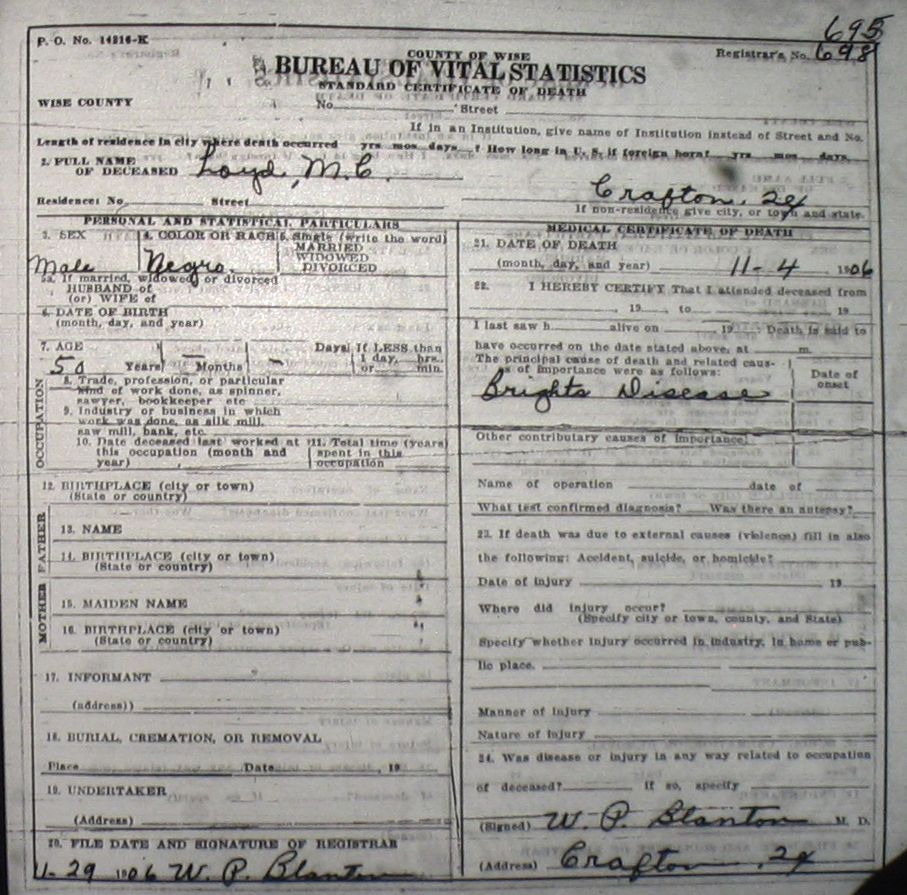 695
P. O. No. 14216-K
COUNTY OF WISE
Registrar's No. 698
BUREAU OF VITAL STATISTICS
STANDARD CERTIFICATE OF DEATH
WISE COUNTY
No. Street
If in an Institution, give name of Institution instead of Street and No.
Length of residence in city where death occurred yrs mos days ? How long in U. S. if foreign born? yrs mos days.
2. FULL NAME
OF DECEASED Loyd, M. C.
Residence: No. Street Crafton,
If non-residence give city, or town and state.
PERSONAL AND STATISTICAL PARTICULARS
3. SEX
Male
4. COLOR OR RACE
Negro.
5. Single (write the word)
MARRIED
WIDOWED
DIVORCED
5a. If married, widowed or divorced
HUSBAND of
(or) WIFE of
6. DATE OF BIRTH
(month, day, and year)
7. AGE
50 Years — Months — Days
If LESS than
1 day, hrs.
or min.
OCCUPATION
8. Trade, profession, or particular
kind of work done, as spinner,
sawyer, bookkeeper etc
9. Industry or business in which
work was done, as silk mill,
saw mill, bank, etc.
10. Date deceased last worked at
this occupation (month and
year)
11. Total time (years)
spent in this
occupation
12. BIRTHPLACE (city or town)
(State or country)
FATHER
13. NAME
14. BIRTHPLACE (city or town)
(State or country)
MOTHER
15. MAIDEN NAME
16. BIRTHPLACE (city or town)
(State or country)
17. INFORMANT
(address))
18. BURIAL, CREMATION, OR REMOVAL
Place Date , 19
19. UNDERTAKER
(Address)
20. FILE DATE AND SIGNATURE OF REGISTRAR
11-29 1906 W. P. Blanton
MEDICAL CERTIFICATE OF DEATH
21. DATE OF DEATH
(month, day, and year) 11-4 1906
22. I HEREBY CERTIFY That I attended deceased from
, 19 , to , 19
I last saw h alive on , 19 Death is said to
have occurred on the date stated above, at m.
The principal cause of death and related causes
of importance were as follows:
Date of
onset
Brights Disease
Other contributary causes of importance:
Name of operation date of
What test confirmed diagnosis? Was there an autopsy?
23. If death was due to external causes (violence) fill in also
the following: Accident, suicide, or homicide?
Date of injury 19
Where did injury occur?
(Specify city or town, county, and State)
Specify whether injury occurred in industry, in home or pub-
lic place.
Manner of injury
Nature of Injury
24. Was disease or injury in any way related to occupation
of deceased? if so, specify
(Signed) W. P. Blanton M. D.
(Address) Crafton,